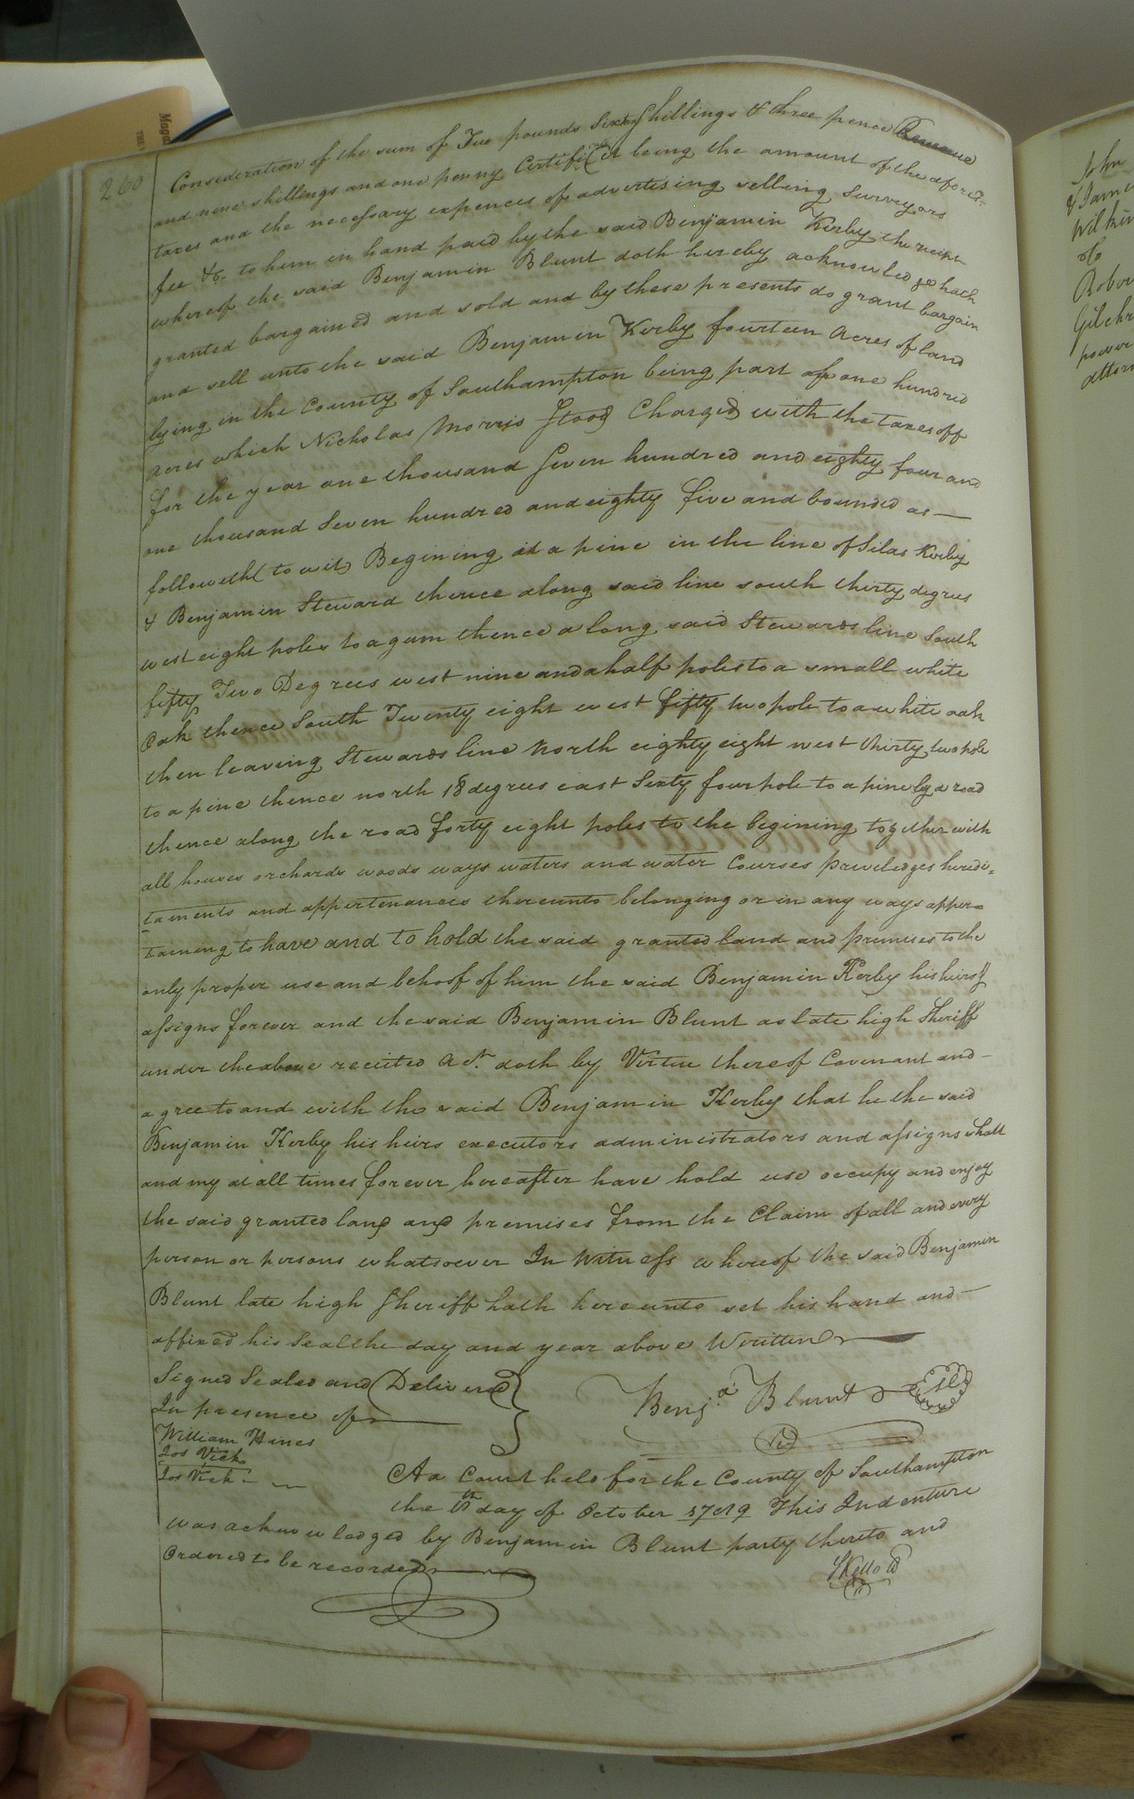 260
Consideration of the sum of Two pounds Sixty Shillings & three pence Revenue
and nine shillings and one penny Certifi(te it being the amount of the aforesd.
taxes and the necessary expences of advertising selling Surveyors
fee &c. to him in hand paid by the said Benjamin Kerby the receipt
whereof the said Benjamin Blunt doth hereby acknowledge hath
granted bargained and sold and by these presents do grant bargain
and sell unto the said Benjamin Kerby fourteen acres of land
lying in the County of Southampton being part of one hundred
acres which Nicholas Morris Stood Charged with the taxes off
for the year one thousand Seven hundred and eighty four and
one thousand Seven hundred and eighty five and bounded as —
followeth (to wit) Begining at a pine in the line of Silas Kerby
& Benjamin Steward thence along said line south thirty degrees
west eight poles to a gum thence along said Stewards line South
fifty Two Degrees west nine and a half poles to a small white
Oak thence South Twenty eight west fifty two pole to a white oak
then leaving Stewards line North eighty eight west thirty two pole
to a pine thence north 18 degrees east Sixty four pole to a pine by a road
thence along the road forty eight poles to the begining together with
all houses orchards woods ways waters and water Courses priveledges heredi=
taments and appertenances thereunto belonging or in any ways apper=
taining to have and to hold the said granted land and premises to the
only proper use and behoof of him the said Benjamin Kerby his heirs &
assigns forever and the said Benjamin Blunt as late high Sheriff
under the above recited act. doth by Virtue thereof Covenant and —
agree to and with the said Benjamin Kerby that he the said
Benjamin Kerby his heirs executors administrators and assigns shall
and my at all times forever hereafter have hold use occupy and enjoy
the said granted land and premises from the Claim of all and every
person or persons whatsoever In Witness whereof the said Benjamin
Blunt late high Sheriff hath hereunto set his hand and —
affixed his Seal the day and year above Written
Signed Sealed and Delivered
In presence of
Benja. Blunt
William Hines
Jos Vick
Jos Vick
At a Court held for the County of Southampton
the day of October This Indenture
was acknowledged by Benjamin Blunt party thereto and
Ordered to be recorded
John
& James
Gilchr
power
attorn